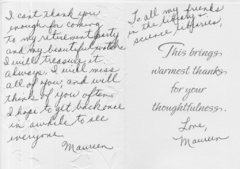 I can't thank you
enough for coming
to my retirement party
and my beautiful picture
I will treasure it
always. I will miss
all of you and will
think of you often
I hope to get back once
in awhile to see
everyone
Maureen
To all my friends
in the library &
science libraries,
This brings
warmest thanks
for your
thoughtfulness.
Love,
Maureen